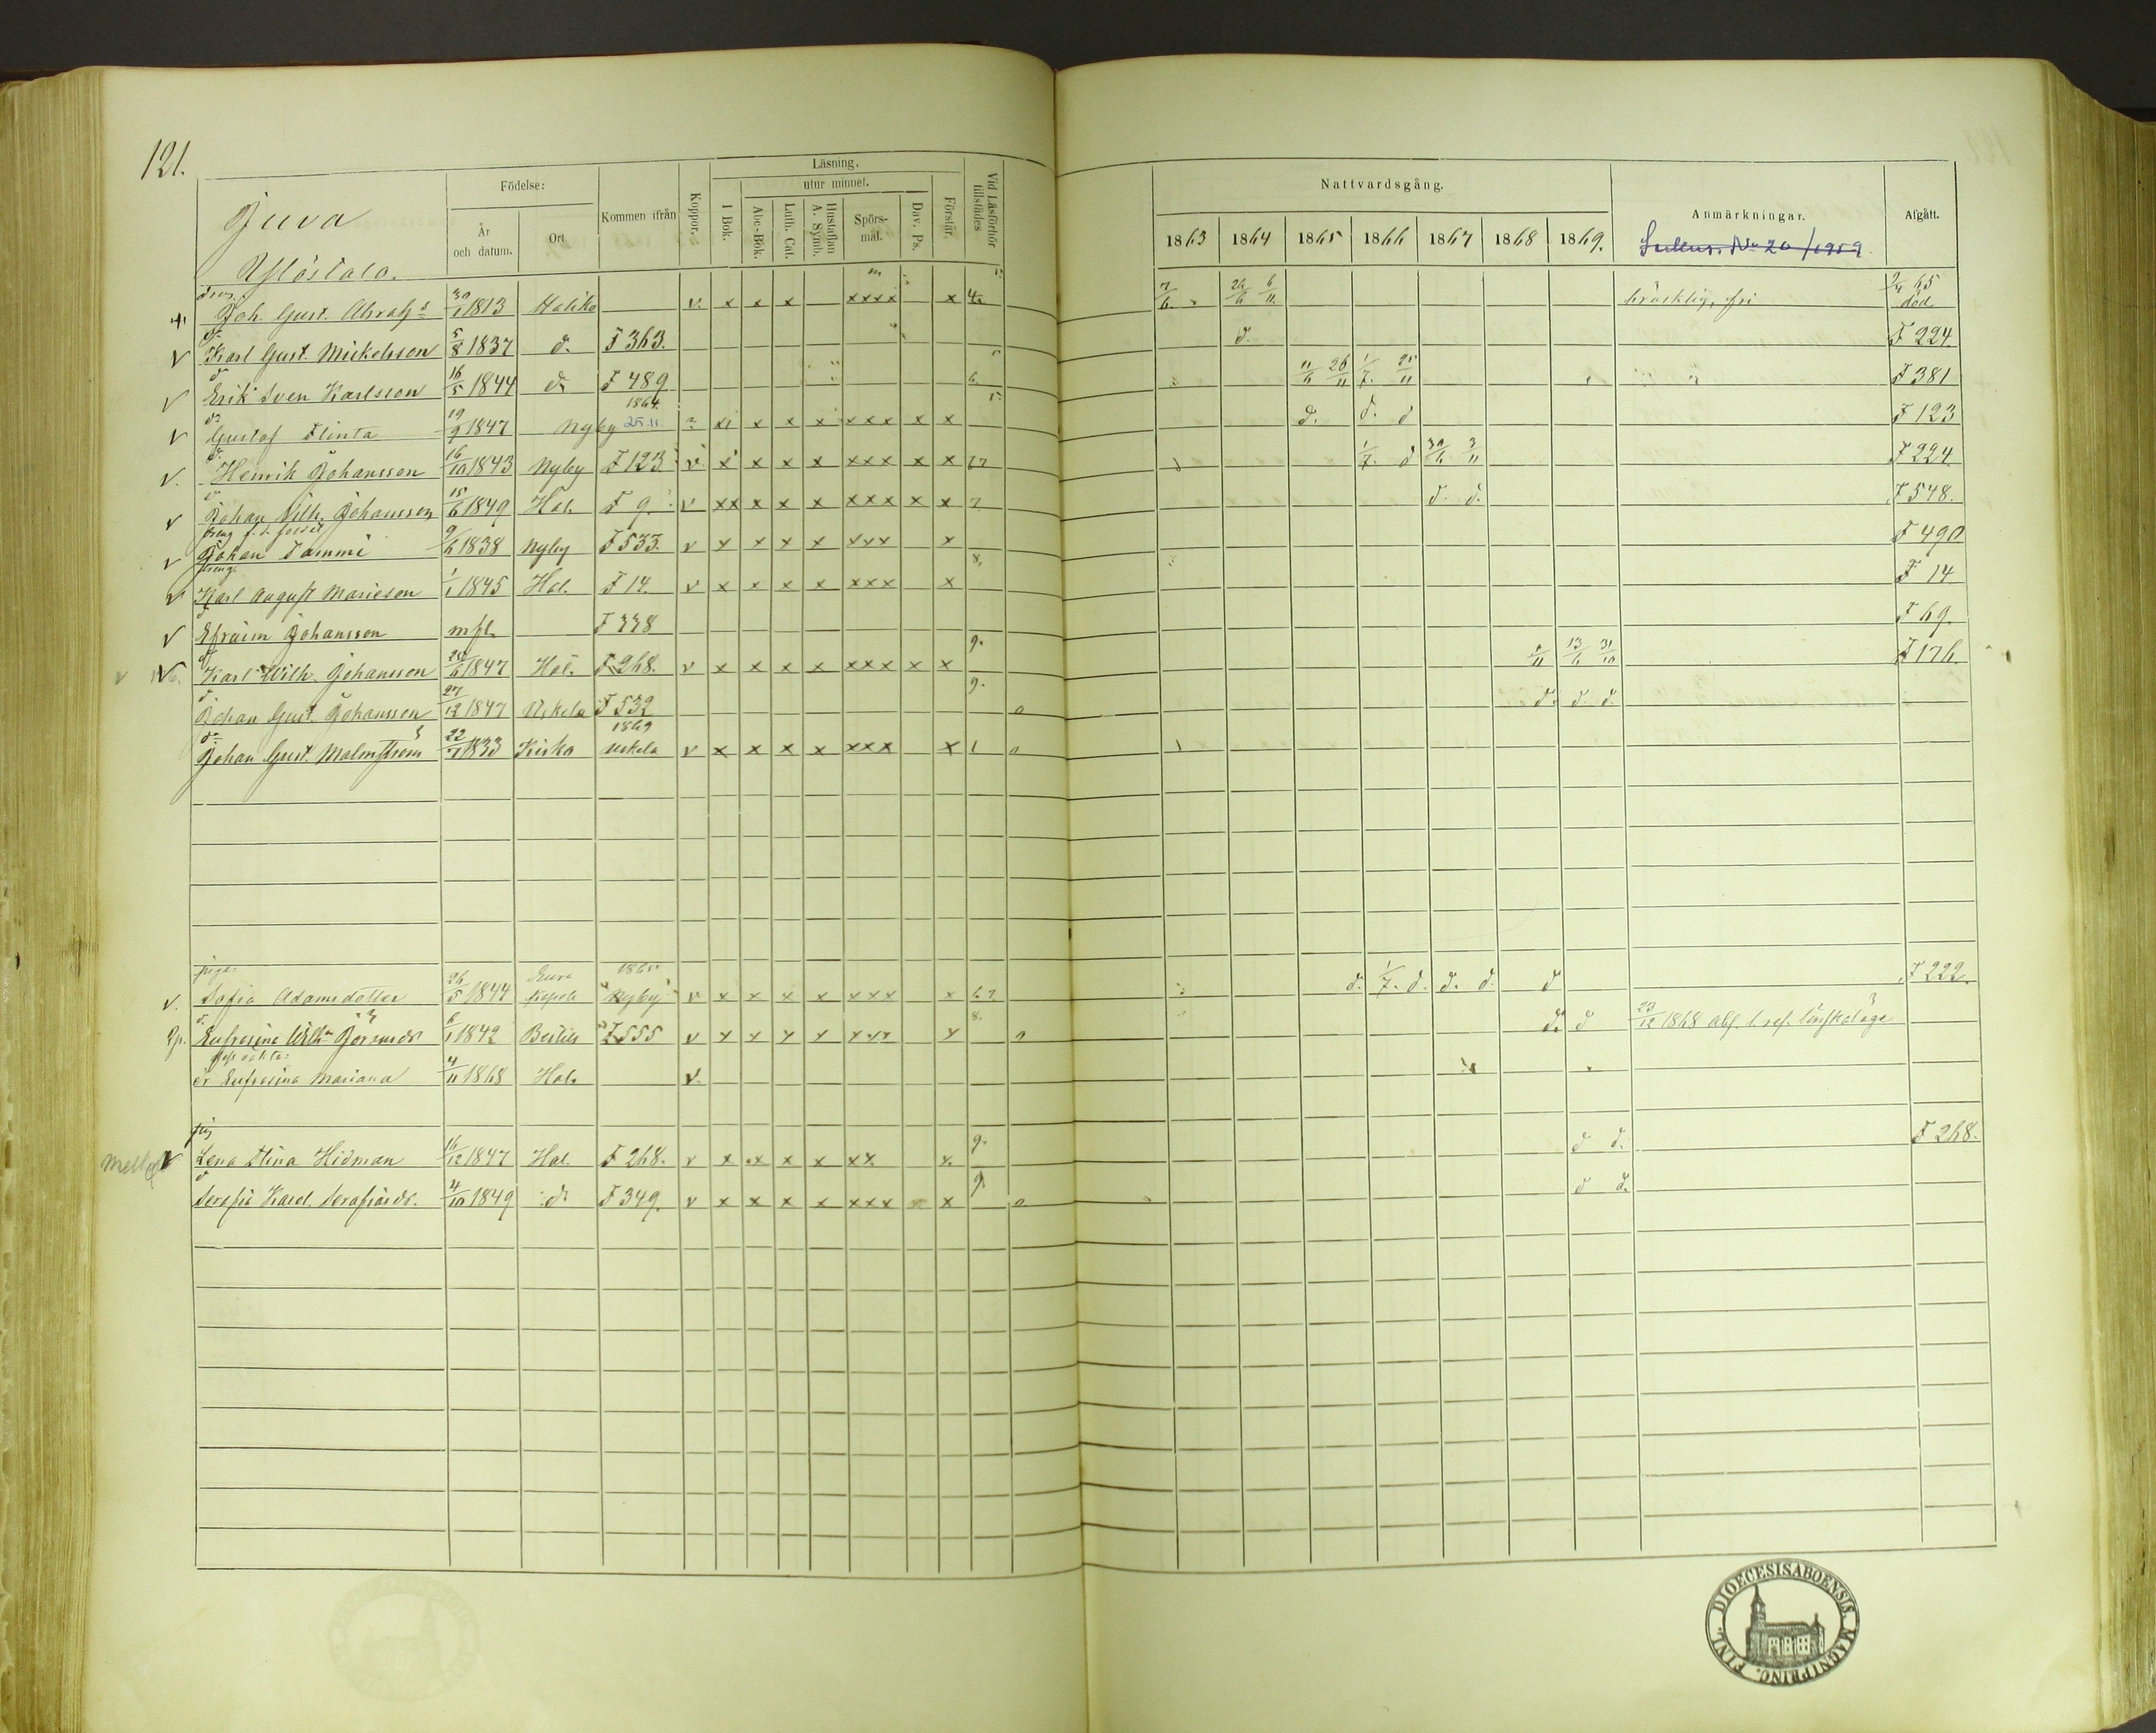 121.
Juva
Födelse:
År och datum.
Ort
Kommen ifrån
Koppor.
Läsning.
I Bok.
utur minnet.
Abc-Bok.
Luth. Cat.
Hustaflan A. Symb.
Spörsmål.
Dav. Ps.
Förstår.
Vid Läsförhör tillstädes
Nattvardsgång.
1863 1864 1865 1866 1867 1868 1869.
Anmärkningar.
Afgått.
No 20/1959
dräng
Joh. Gust. 30/1 1813 Haliko v. x x x xxxx x 4. 7/6. 26/6 6/11. bräcklig, fri 2/4 65 död
d:
Karl Gust. Mickelsson 5/8 1837 d. F 363. d. F 224.
d:
Erik Sven Karlsson 16/5 1844 d: F 489 6. 11/6 26/11 1/7. 25/11 F 381
1864.
d:
Gustaf Flinta 19/9 1847 Nyby 25.11. x x x xxx x x 5. d. d. d F 123
d.
Henrik Johansson 16/10 1843 Nyby F 123 v x x x x xxx x x 67 1/7. d 30/6 3/11 F 224.
d
Johan Vilh. Johansson 15/6 1849 Hal. F 9. v xx x x x xxx x x 7 d. d. F 548.
Johan Tammi 9/6 1838 Nyby F 533. v x x x x xxx x F 490
dräng.
Karl August Marieson 1/1 1845 Hal. F 14. v x x x x xxx x 8. F 14
d
Efraim Johansson mfl. F 338 F 69.
d
Karl Wilh. Johansson 20/6 1847 Hal. F 268. v x x x x xxx x x 9. 13/6 31/10 F 176.
d.
Johan Gust. Johansson 27/12 1847 Uskela F 532 9. 0 d. d. d.
1869
d:
Johan Gust. Malmström 22/11 1833 Kisko Uskela v x x x x xxx x 1 0
piga:
Sofia Adamsdotter 26/5 1844 Eura 1865 Nyby v x x x x xxx x 6.7 d. 1/7. d. d. d. d F 222.
d.
Eufrosina 6/1 1842 F 555 v x x x x xxx x 8. 0 d. d 22/12 1868 abs. f. ref. lönskaläge
oäkta:
Eufrosina Mariana 4/11 1868 Hal. v.
pig
Lena Stina Hidman 16/12 1847 Hal. F 268. v x x x x xx x. 9. d d. F 268.
d
Serafia Karol. Serafiasdr. 4/10 1849 d: F 349. v x x x x xxx x 9. 0 d d.
DIOECESIS ABOENSIS. MAGNI PRINC. FINL.